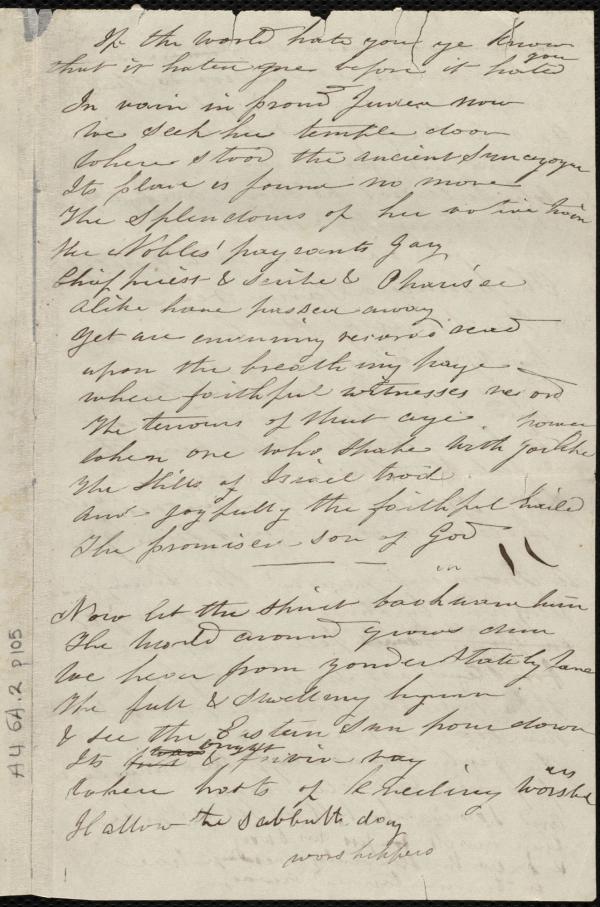 If the world hate you ye know
that it hated me before it hated
you
In vain in proud Judea now
We seek her temple door
Where stood the ancient Synagogue
Its place is found no more
The Splendours of her votive train
the Nobles' pageants gay
Chief priest & scribe & Pharisee
Alike have passed away
Yet an enduring record read
upon the breathing page
where faithful witnesses record
The terrours of that age
power
When one who spake with godlike
The Hills of Israel trod
And joyfully the faithful hailed
The promised son of God
Now let the Spirit backward turn
The World around grows dim
We hear from yonder Stately fane
The full & swelling hymn
& see the Eastern Sun pour down
bright
Its & ray
Where hosts of kneeling worship
ers
Hallow the Sabbath day
worshippers
A4 6A.2 p105